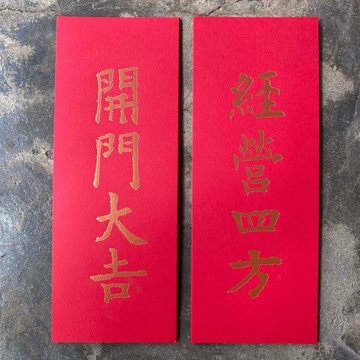 開門大吉
經營四方